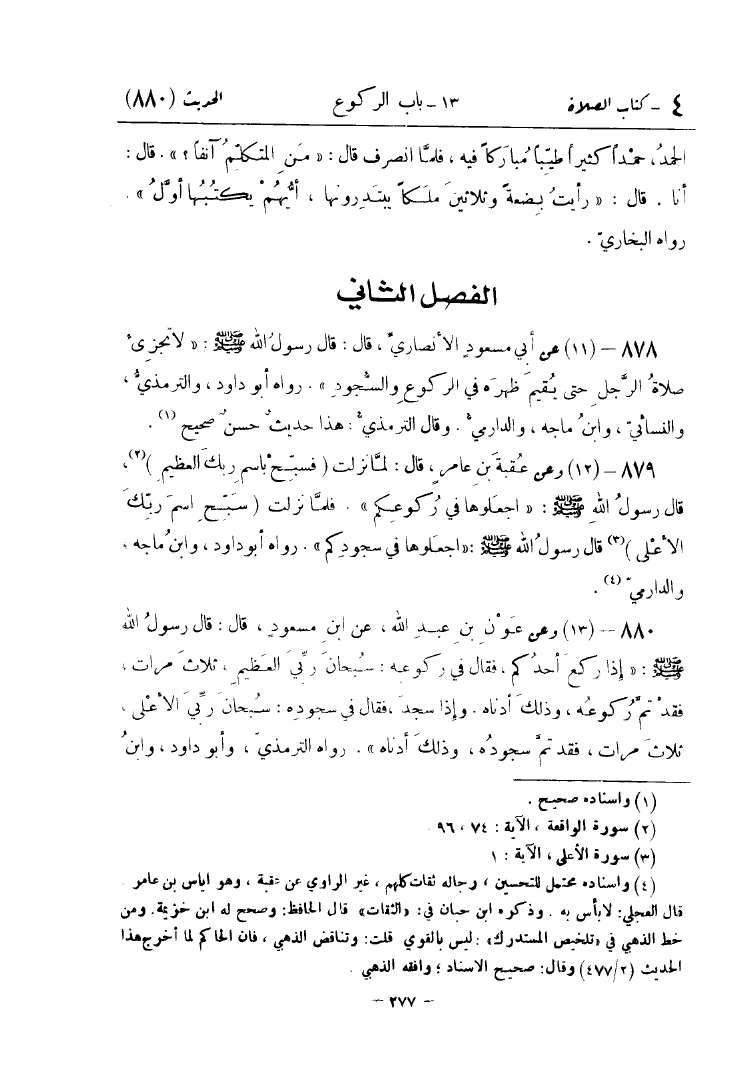 ٤ - كتاب الصلاة ١٣ - باب الركوع الحديث (٨٨٠)
الحمدُ، حمْداً كثيراً طيّباً مُباركاً فيه، فلمَّا انصرف قال: «منِ المتكلّمُ آنفاً؟». قال:
أنا . قال : «رأيتُ بِضعةً وثلاثينَ ملَكاً يبتدرونها ، أيُّهمْ يكتُبُها أوَّلُ» .
رواه البخاريّ .
الفصل الثاني
٨٧٨ – (١١) عن أبي مسعودٍ الأنصاريّ، قال: قال رسولُ الله ﷺ: «لا تجزىءُ
صلاةُ الرَّجلِ حتى يُقيمَ ظهرَه في الركوعِ والسُّجودِ» . رواه أبو داود، والترمذيُّ،
والنسائيّ، وابنُ ماجه، والدارميُّ . وقال الترمذيُّ: هذا حديثٌ حسنٌ صحيح (١).
٨٧٩ – (١٢) وعن عُقبةَ بنِ عامرٍ، قال: لمَّا نزلت ( فسبِّحْ باسمِ ربكَ العظيم )(٢)،
قال رسولُ اللهِ ﷺ : «اجعلوها في رُكوعِكم» . فلمَّا نزلت ( سَبِّحِ اسمَ ربِّكَ
الأعْلى )(٣) قال رسولُ الله ﷺ: «اجعلوها في سجودِكم» . رواه أبو داود، وابنُ ماجه،
والدارميّ (٤) .
٨٨٠ – (١٣) وعن عَوْنِ بنِ عبدِ الله، عن ابنِ مسعودٍ، قال: قال رسولُ الله
ﷺ: «إذا ركعَ أحدُكم، فقال في ركوعه: سُبحانَ ربِّيَ العظيمِ، ثلاثَ مرات،
فقد تمَّ رُكوعُه، وذلكَ أدناه. وإذا سجدَ، فقال في سجودِه: سُبحانَ ربِّيَ الأعْلى،
ثلاثَ مرات، فقد تمَّ سجودُه، وذلكَ أدناه» . رواه الترمذيّ، وأبو داود، وابنُ
(١) واسناده صحيح .
(٢) سورة الواقعة ، الآية : ٧٤ ، ٩٦ .
(٣) سورة الأعلى ، الآية : ١
(٤) واسناده محتمل للتحسين، رجاله ثقات كلهم، غير الراوي عن عقبة ، وهو اياس بن عامر .
قال العجلي: لا بأس به . وذكره ابن حبان في: «الثقات» قال الحافظ: وصحح له ابن خزيمة. ومن
خط الذهبي في «تلخيص المستدرك»: ليس بالقوي قلت: وتناقض الذهبي، فان الحاكم لما أخرج هذا
الحديث (٤٧٧/٢) وقال: صحيح الاسناد؛ وافقه الذهبي .
– ٢٧٧ –